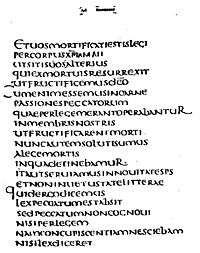 ETUOSMORTIFICATIESTISLEGI
PERCORPUSXPI
UTSITISUOSALTERIUS
QUIEXMORTUISRESURREXIT
UTFRUCTIFICEMUSDO
CUMENIMESSEMUSINCARNE
PASSIONESPECCATORUM
QUAEPERLEGEMERANTOPERABANTUR
INMEMBRISNOSTRIS
UTFRUCTIFICARENTMORTI
NUNCAUTEMSOLUTISUMUS
ALEGEMORTIS
INQUADETINEBAMUR
ITAUTSERUIAMUSINNOUITATESPS
ETNONINUETUSTATELITTERAE
QUIDERGODICEMUS
LEXPECCATUMESTABSIT
SEDPECCATUMNONCOGNOUI
NISIPERLEGEM
NAMCONCUPISCENTIAMNESCIEBAM
NISILEXDICERET